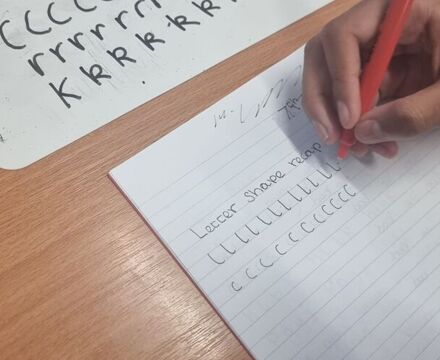 c c c c c
r r r r r r r
k k k k k k k
Letter shape recap
l l l l l l l l l l l l
c c c c c c c c c c c c